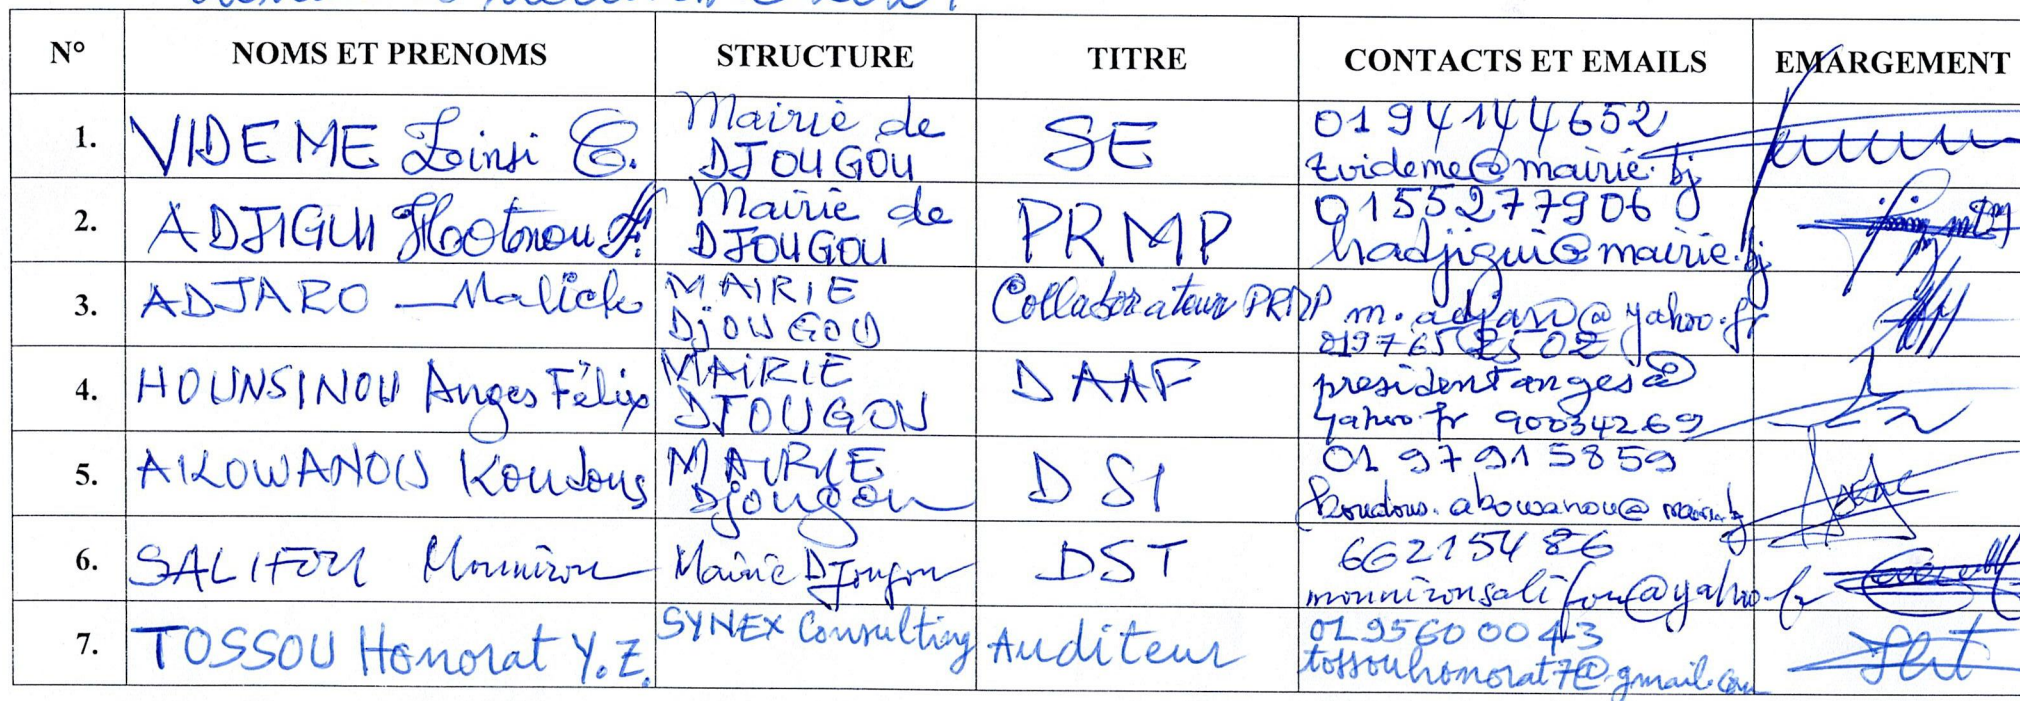 N° NOMS ET PRENOMS STRUCTURE TITRE CONTACTS ET EMAILS EMARGEMENT
1. VIDEME Zinsi C. Mairie de DJOUGOU SE 0194144652 zvideme@mairie.bj
2. ADJIGUI Hotnou H. Mairie de DJOUGOU PRMP 0155277906 hadjigui@mairie.bj
3. ADJARO Malick MAIRIE DjOUGOU Collaborateur PRMP m.adjaro@yahoo.fr
4. HOUNSINOU Anges Félix MAIRIE DJOUGOU DAAF presidentanges@yahoo.fr 90034269
5. AKOWANOU Koudous MAIRIE Djougou DSI 01 97915859 koudous.akowanou@mairie.bj
6. SALIFOU Mounirou Mairie Djougou DST 66215486 mounirousalifou@yahoo.fr
7. TOSSOU Honorat Y.Z. SYNEX Consulting Auditeur 0195600043 tossouhonorat7@gmail.com